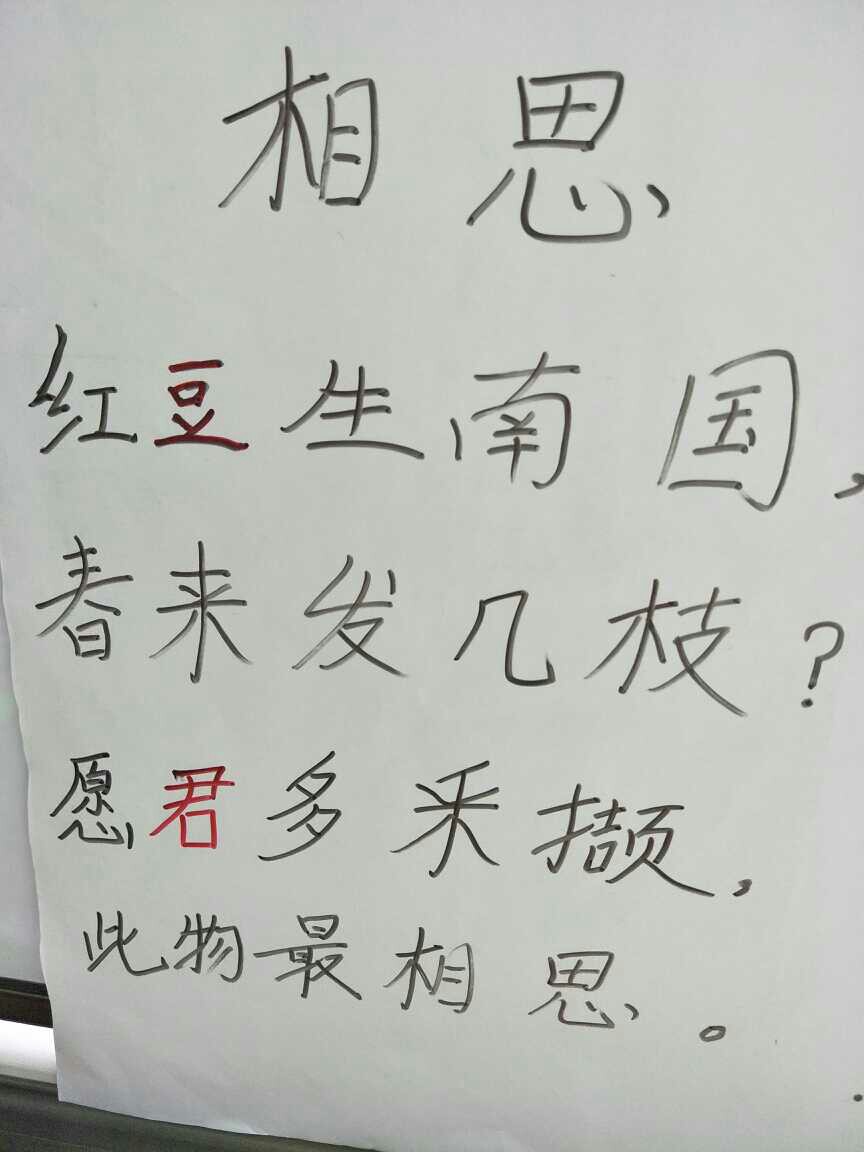 相思
红豆生南国,
春来发几枝?
愿君多采撷,
此物最相思。